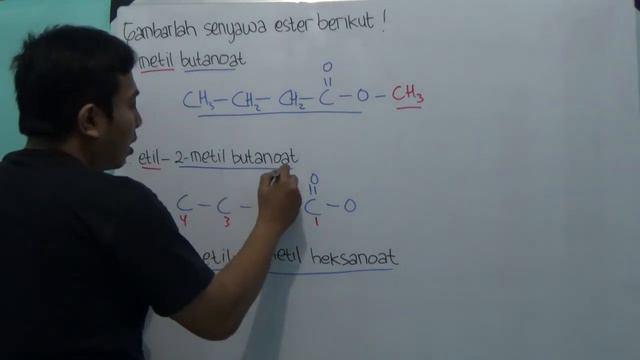 Gambarlah senyawa ester berikut !
metil butanoat
O
CH₃ – CH₂ – CH₂ – C – O – CH₃
etil – 2-metil butanoat
O
C – C – C – O
4 3 1
heksanoat